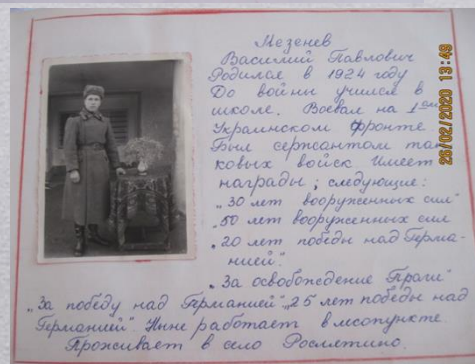 Мезенев
Василий Павлович
Родился в 1924 году
До войны учился в
школе. Воевал на 1ом
Украинском фронте.
Был сержантом тан-
ковых войск. Имеет
награды, следующие:
"30 лет вооруженных сил"
"50 лет вооруженных сил
"20 лет победы над Герма-
нией".
"За освобождение Праги"
"За победу над Германией", "25 лет победы над
Германией". Ныне работает в
Проживает в село
26/02/2020 13:49